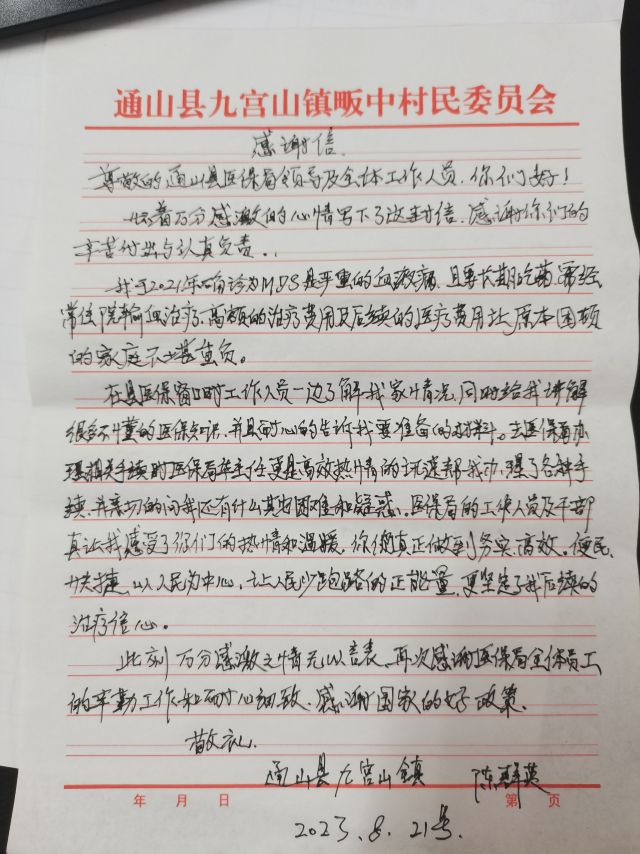 通山县九宫山镇畈中村民委员会
感谢信.
尊敬的通山县医保局领导及全体工作人员，你们好！
怀着万分感激的心情写下了这封信，感谢你们的
辛苦付出与认真负责.
我于2021年确诊为MDS是严重的血液病，且要长期吃药，需经
常住院输血治疗，高额的治疗费用及后续的医疗费用让原本困顿
的家庭不堪重负。
在县医保窗口时工作人员一边了解我家情况，同时给我讲解
很多不懂的医保知识，并且耐心的告诉我要准备的材料。去医保局办
理相关手续时医保局主任更是高效热情的迅速帮我办理了各种手
续，并亲切的问我还有什么其它困难和疑惑。医保局的工作人员及干部
真让我感受了你们的热情和温暖，你们真正做到务实、高效。便民、
快捷，以人民为中心，让人民少跑路的正能量，更坚定了我后续的
治疗信心。
此刻万分感激之情无以言表，再次感谢医保局全体员工
的辛勤工作和耐心细致，感谢国家的好政策。
敬礼
通山县九宫山镇 陈 英
年 月 日 第 页
2023.8.21号.